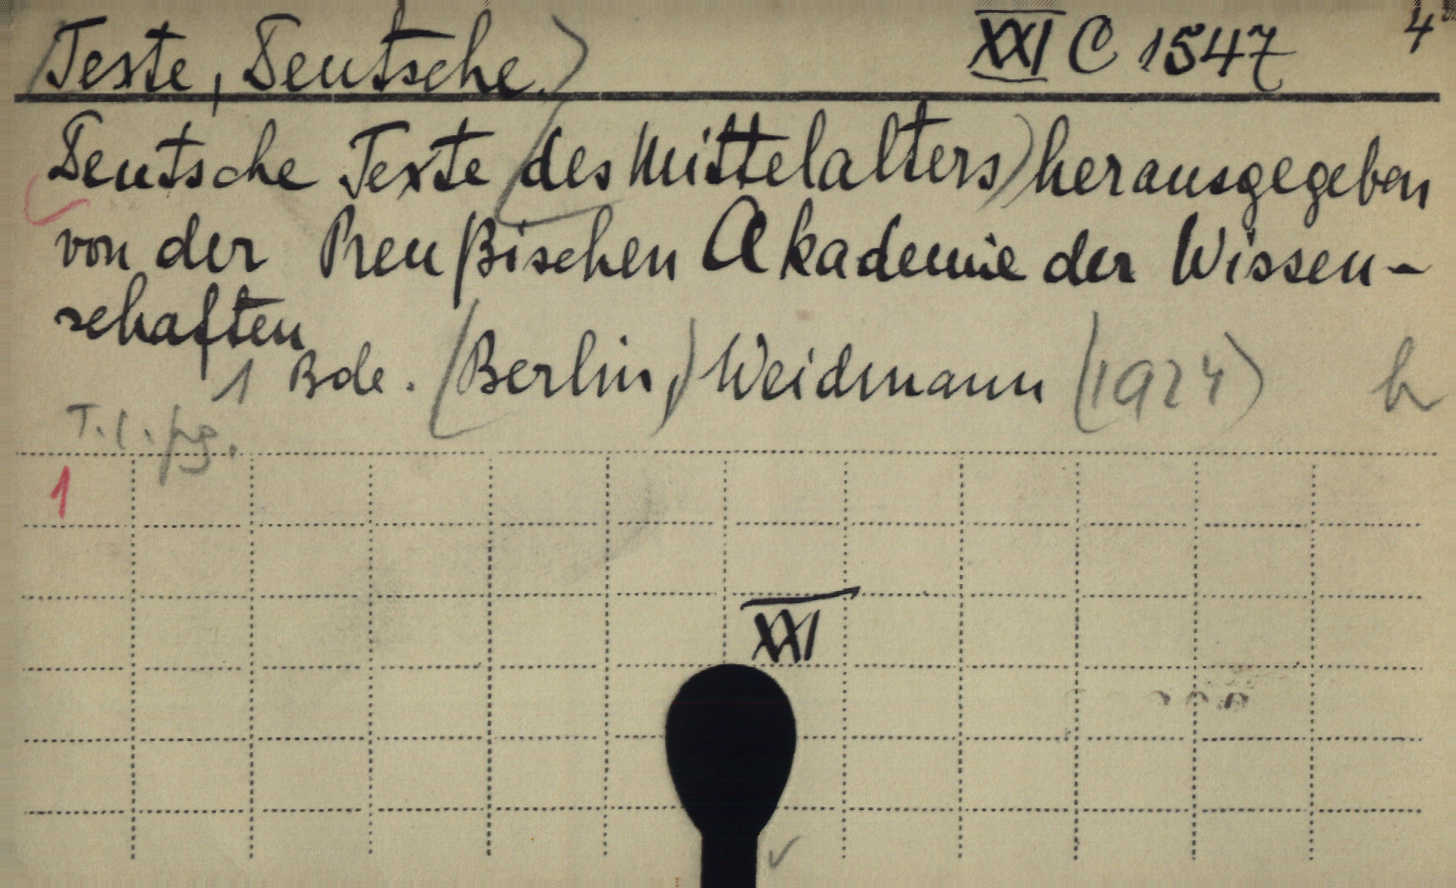 (Texte, Deutsche.) XXI C 1547 4°
Deutsche Texte (des Mittelalters) herausgegeben
von der Preußischen Akademie der Wissen-
schaften
1 Bde. (Berlin,) Weidmann (1924) h
T.l.pg.
1
XXI